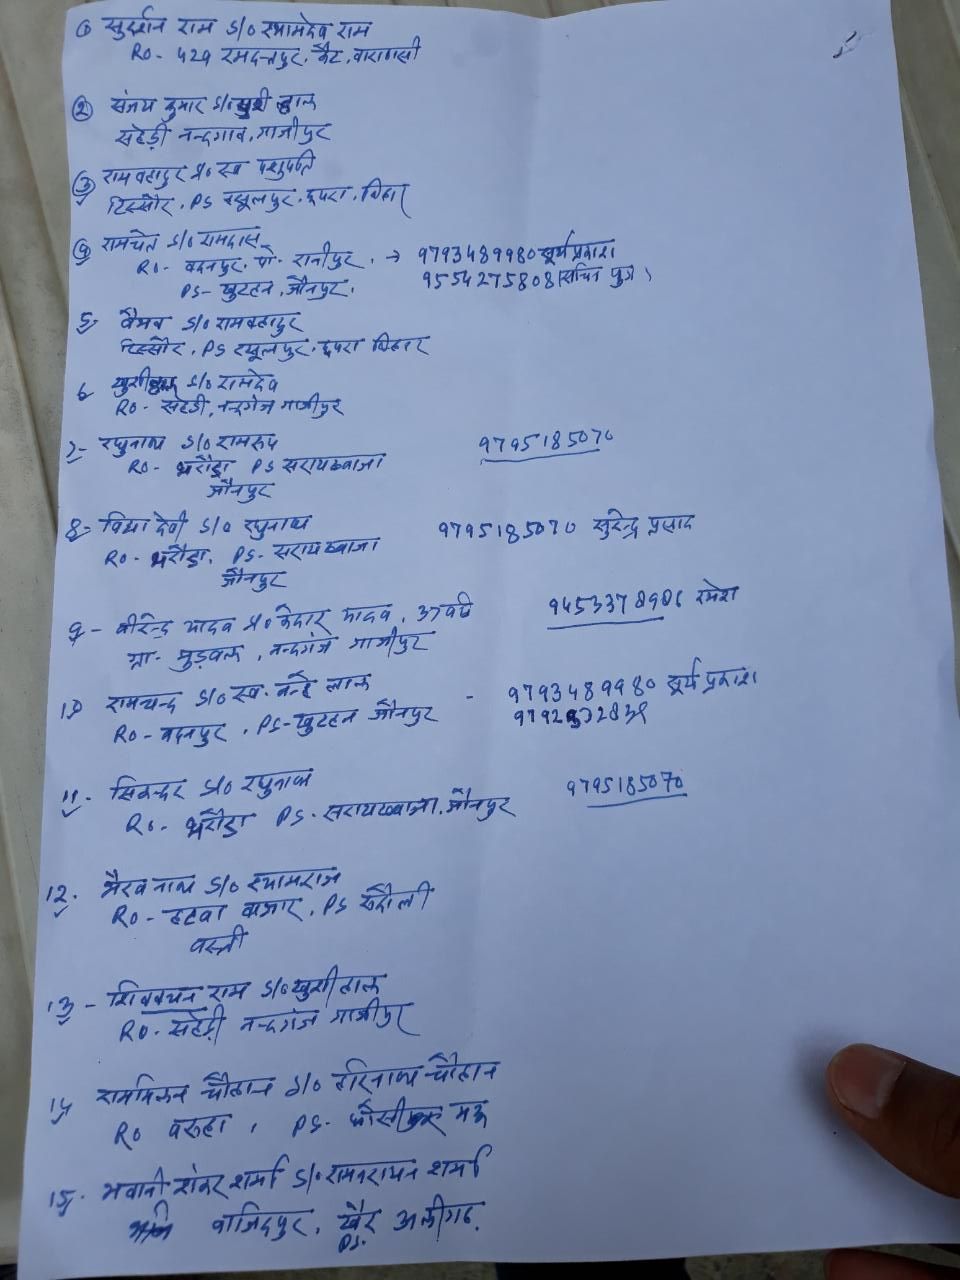 ① सुदर्शन राम S/O श्यामदेव राम
RO- 429 रमदत्तपुर, कैंट, वाराणसी
② संजय कुमार S/O खुशी लाल
सहेड़ी नन्दगाव, गाजीपुर
③ रामबहादुर S/O स्व पशुपति
टिस्सौर, PS रसूलपुर, छपरा, बिहार
④ रामचेत S/O रामदास
RO- बदनपुर, पो- रानीपुर, → 9793489980 सूर्य प्रकाश
PS- खुटहन, जौनपुर, 9554275808 (सचिन पुत्र)
5- वैभव S/O रामबहादुर
टिस्सौर, PS रसूलपुर, छपरा बिहार
6 खुशीलाल S/O रामदेव
RO- सहेड़ी, नन्दगंज गाजीपुर
7- रघुनाथ S/O रामरूप 9795185070
RO- भरौड़ा PS सरायख्वाजा
जौनपुर
8- विमा देवी S/O रघुनाथ 9795185070 सुरेन्द्र प्रसाद
RO- भरौड़ा, PS- सरायख्वाजा
जौनपुर
9- वीरेन्द्र यादव S/O केदार यादव, 37 वर्ष 9453378986 रमेश
ग्रा- मुड़वल, नन्दगंज गाजीपुर
10 रामचन्द्र S/O स्व. नन्हे लाल - 9793489980 सूर्य प्रकाश
RO- बदनपुर, PS- खुटहन जौनपुर
11- सिकन्दर S/O रघुनाथ 9795185070
RO- भरौड़ा PS- सरायख्वाजा, जौनपुर
12- भैरव नाथ S/O श्यामराज
RO- हटवा बाजार, PS रुदौली
बस्ती
13- शिवबचन राम S/O खुशीलाल
RO- सहेड़ी नन्दगंज गाजीपुर
14 राममिलन चौहान S/O हरिनाथ चौहान
RO बरुहा, PS- मऊ
15- भवानी शंकर शर्मा S/O रामनरायन शर्मा
वाजिदपुर, खैर अलीगढ़
PS.